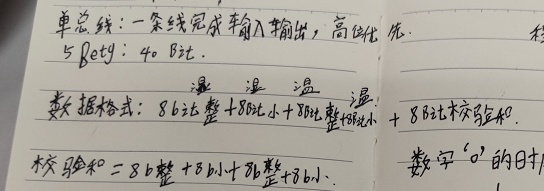 单总线：一条线完成车输入输出，高位优先.
5 Bety： 40 Bit.
湿 湿 温 温
数据格式： 8bit整+8Bit小+8Bit整+8Bit小 + 8Bit校验和.
校验和 = 8b整+8b小+8b整+8b小.
数字‘0’的日